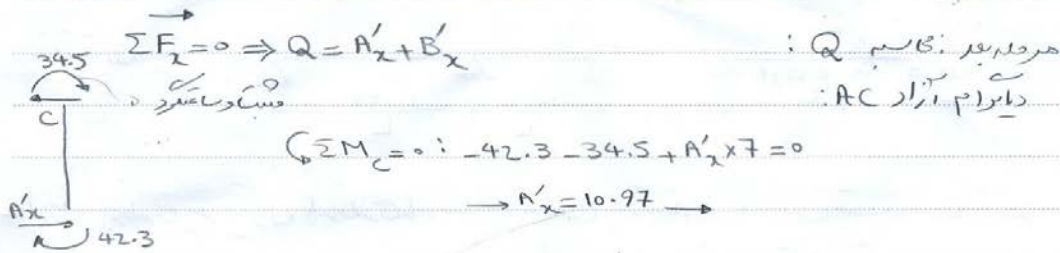 مرحله بعد : محاسبه Q :
ΣFₓ = 0 ⇒ Q = A′ₓ + B′ₓ
دیاگرام آزاد AC:
34.5
مثبت ساعتگرد
C
ΣM_c = 0 : -42.3 - 34.5 + A′ₓ × 7 = 0
→ A′ₓ = 10.97 →
A′x
A
42.3